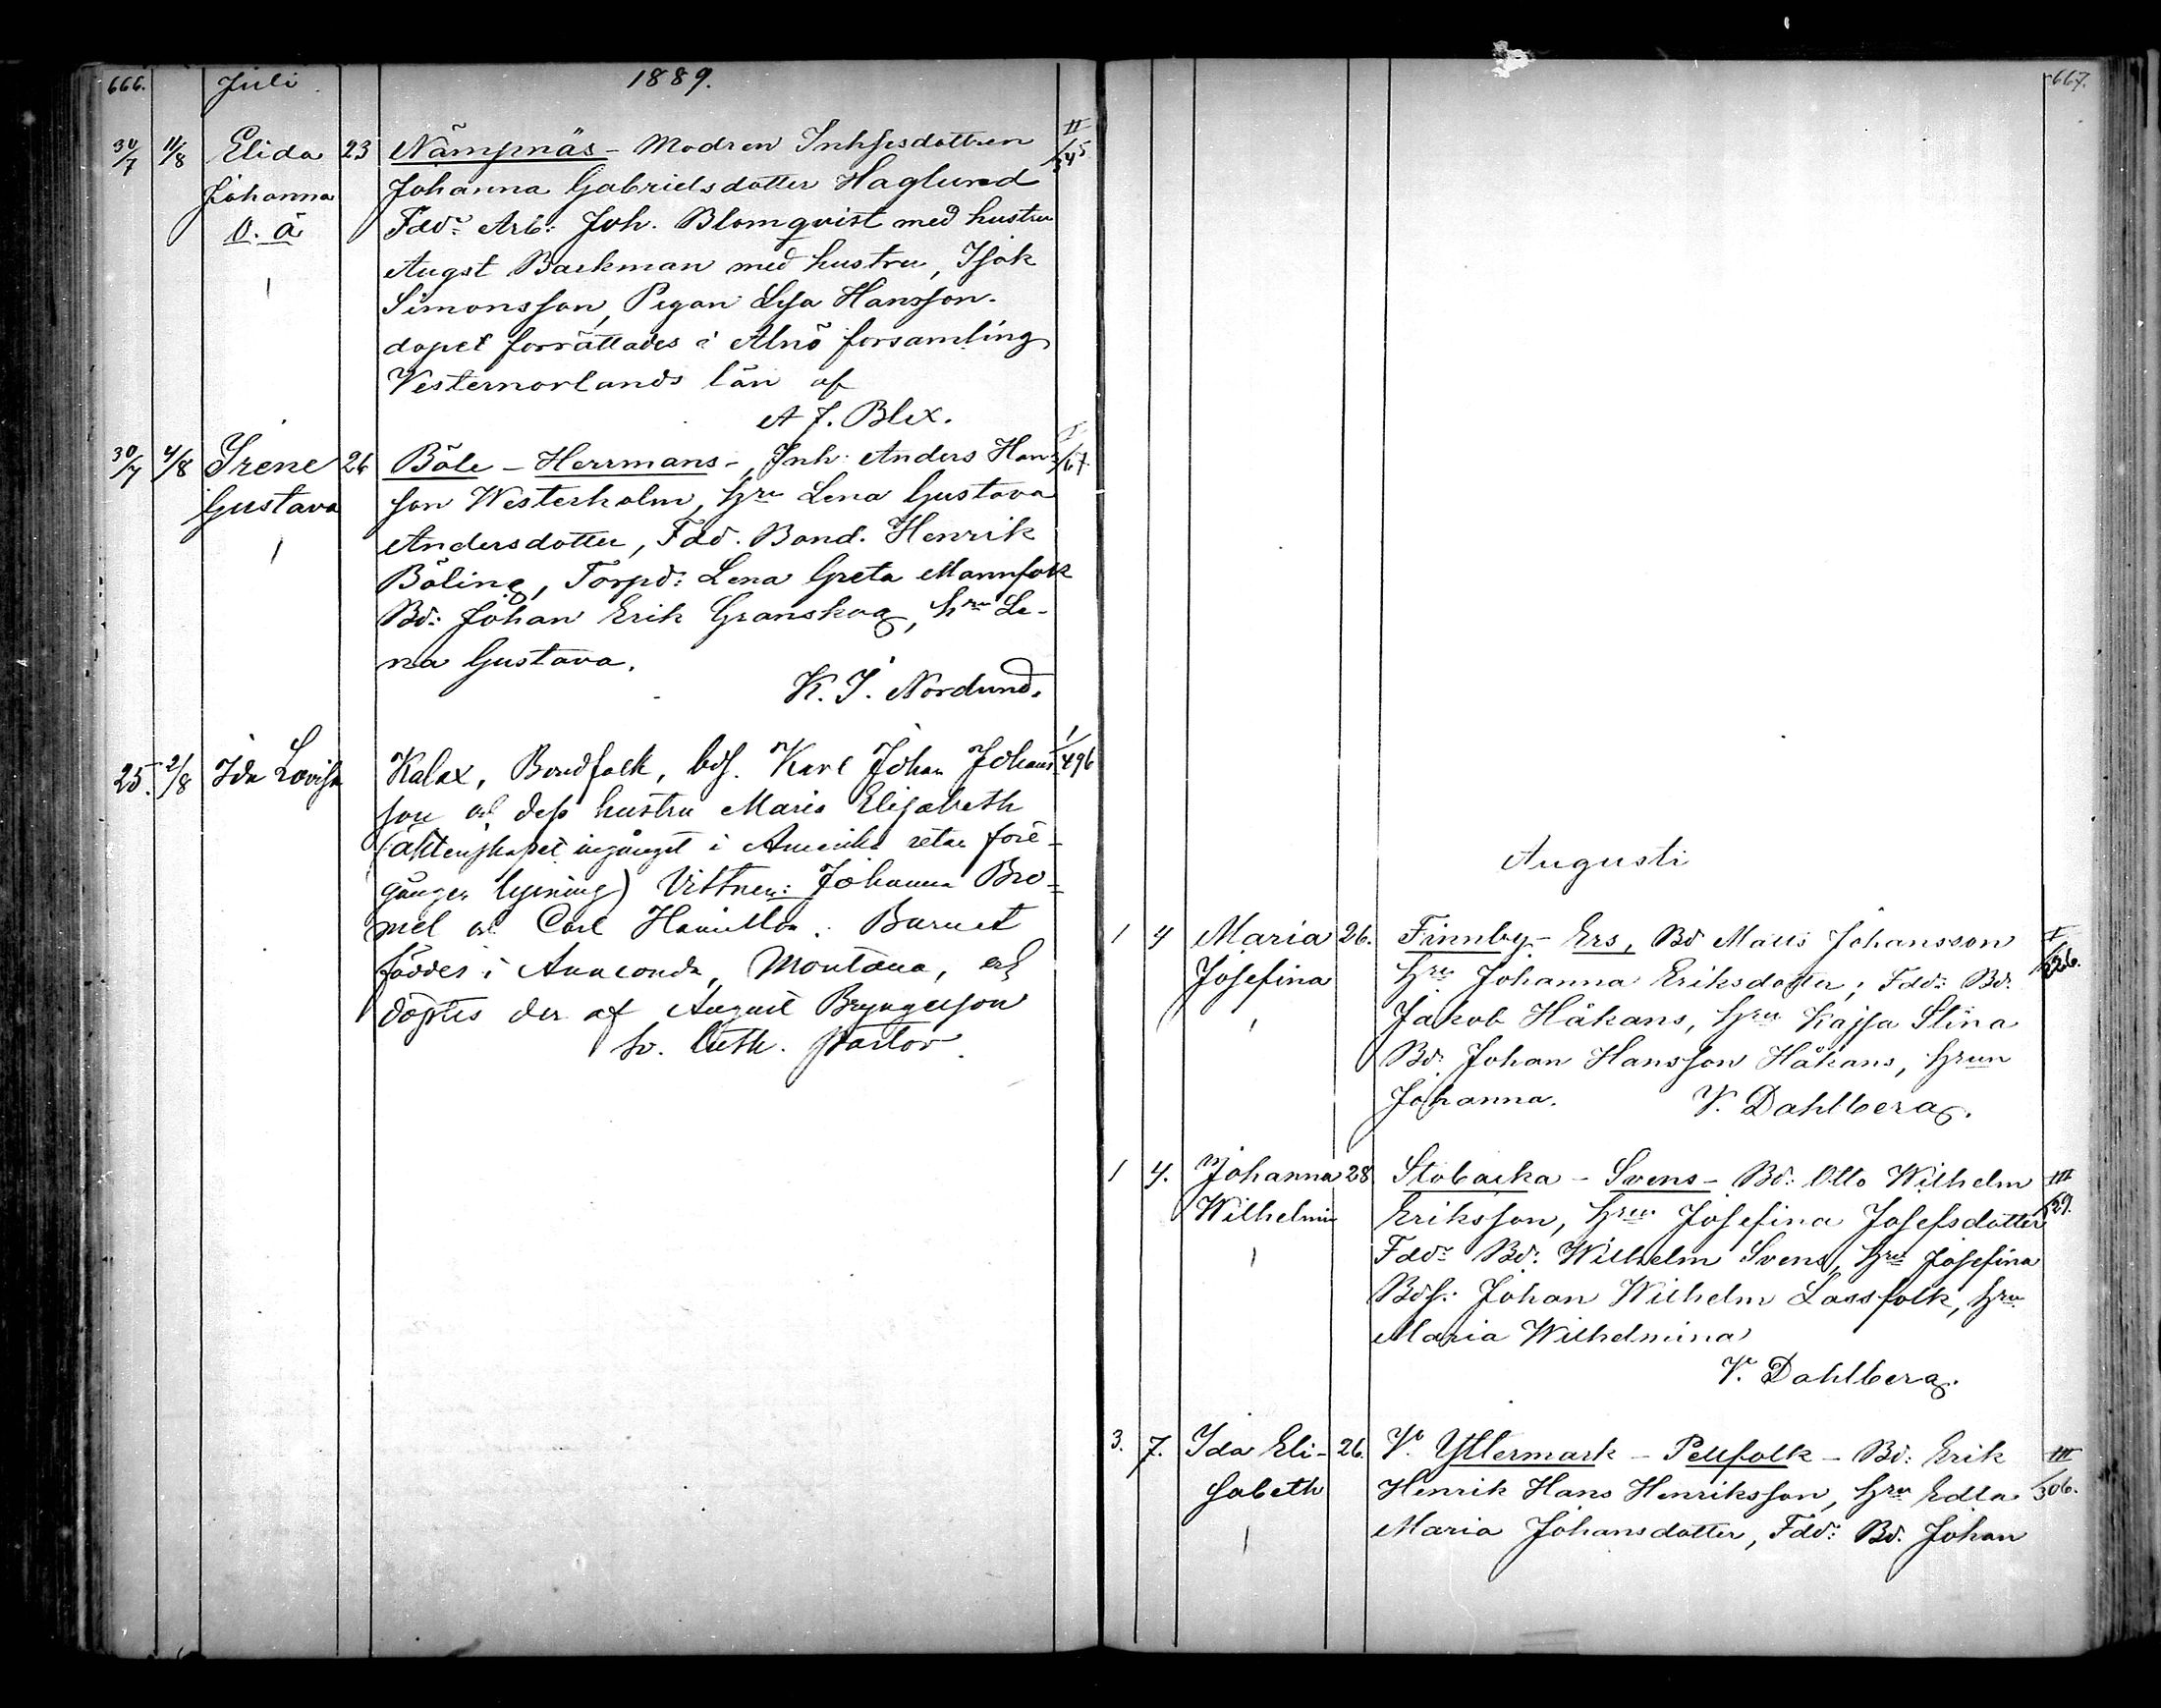 666. Juli 1889.
30/7 11/8 Elida 23 Nämpnäs - Modren Inhysdottren II/345
Johanna Johanna Gabrielsdotter Haglund
O. ä Fadd: Arb: Joh. Blomqvist med hustru
August Backman med hustru, Isak
Simonsson, Pigan Lisa Hansson.
dopet förrättades i Alnö församling
Vesternorlands län af
A J. Blix.
30/7 4/8 Irene 26 Böle - Herrmans -, Inh: Anders Hans I/67.
Gustava son Westerholm, hru Lena Gustava
Andersdotter, Fdd. Bond. Henrik
Böling, Torpd: Lena Greta Mannfolk
Bd: Johan Erik Granskog, hru Le-
na Gustava.
K. J. Nordlund.
25. 2/8 Ida Lovisa Kalax, Bondfolk, bds. Karl Johan Johans 1/496
son och dess hustru Maria Elisabeth
(äktenskapet ingånget i Amerika utan före-
gången lysning) Vittnen: Johanna Bro-
mel och Carl Hamilton. Barnet
föddes i Anaconda, Montana, och
döptes der af August Bryngelson
sv. luth. pastor.
667.
Augusti
1 4 Maria 26. Finnby - Ers, Bd Matts Johansson I/226.
Josefina hru Johanna Eriksdotter; Fdd: Bd.
Jakob Håkans, hru Kajsa Stina
Bd: Johan Hansson Håkans, hrun
Johanna. V. Dahlberg.
1 4. Johanna 28 Stobacka - Svens - Bd: Otto Wilhelm III/29.
Wilhelmin Eriksson, hru Josefina Josefsdotter
Fdd: Bd: Wilhelm Svens, hru Josefina
Bds: Johan Wilhelm Lassfolk, hru
Maria Wilhelmina
V. Dahlberg.
3. 7. Ida Eli- 26. V. Yttermark - Pellfolk - Bd: Erik III/306.
sabeth Henrik Hans Henriksson, hru Edla
Maria Johansdotter, Fdd: Bd. Johan